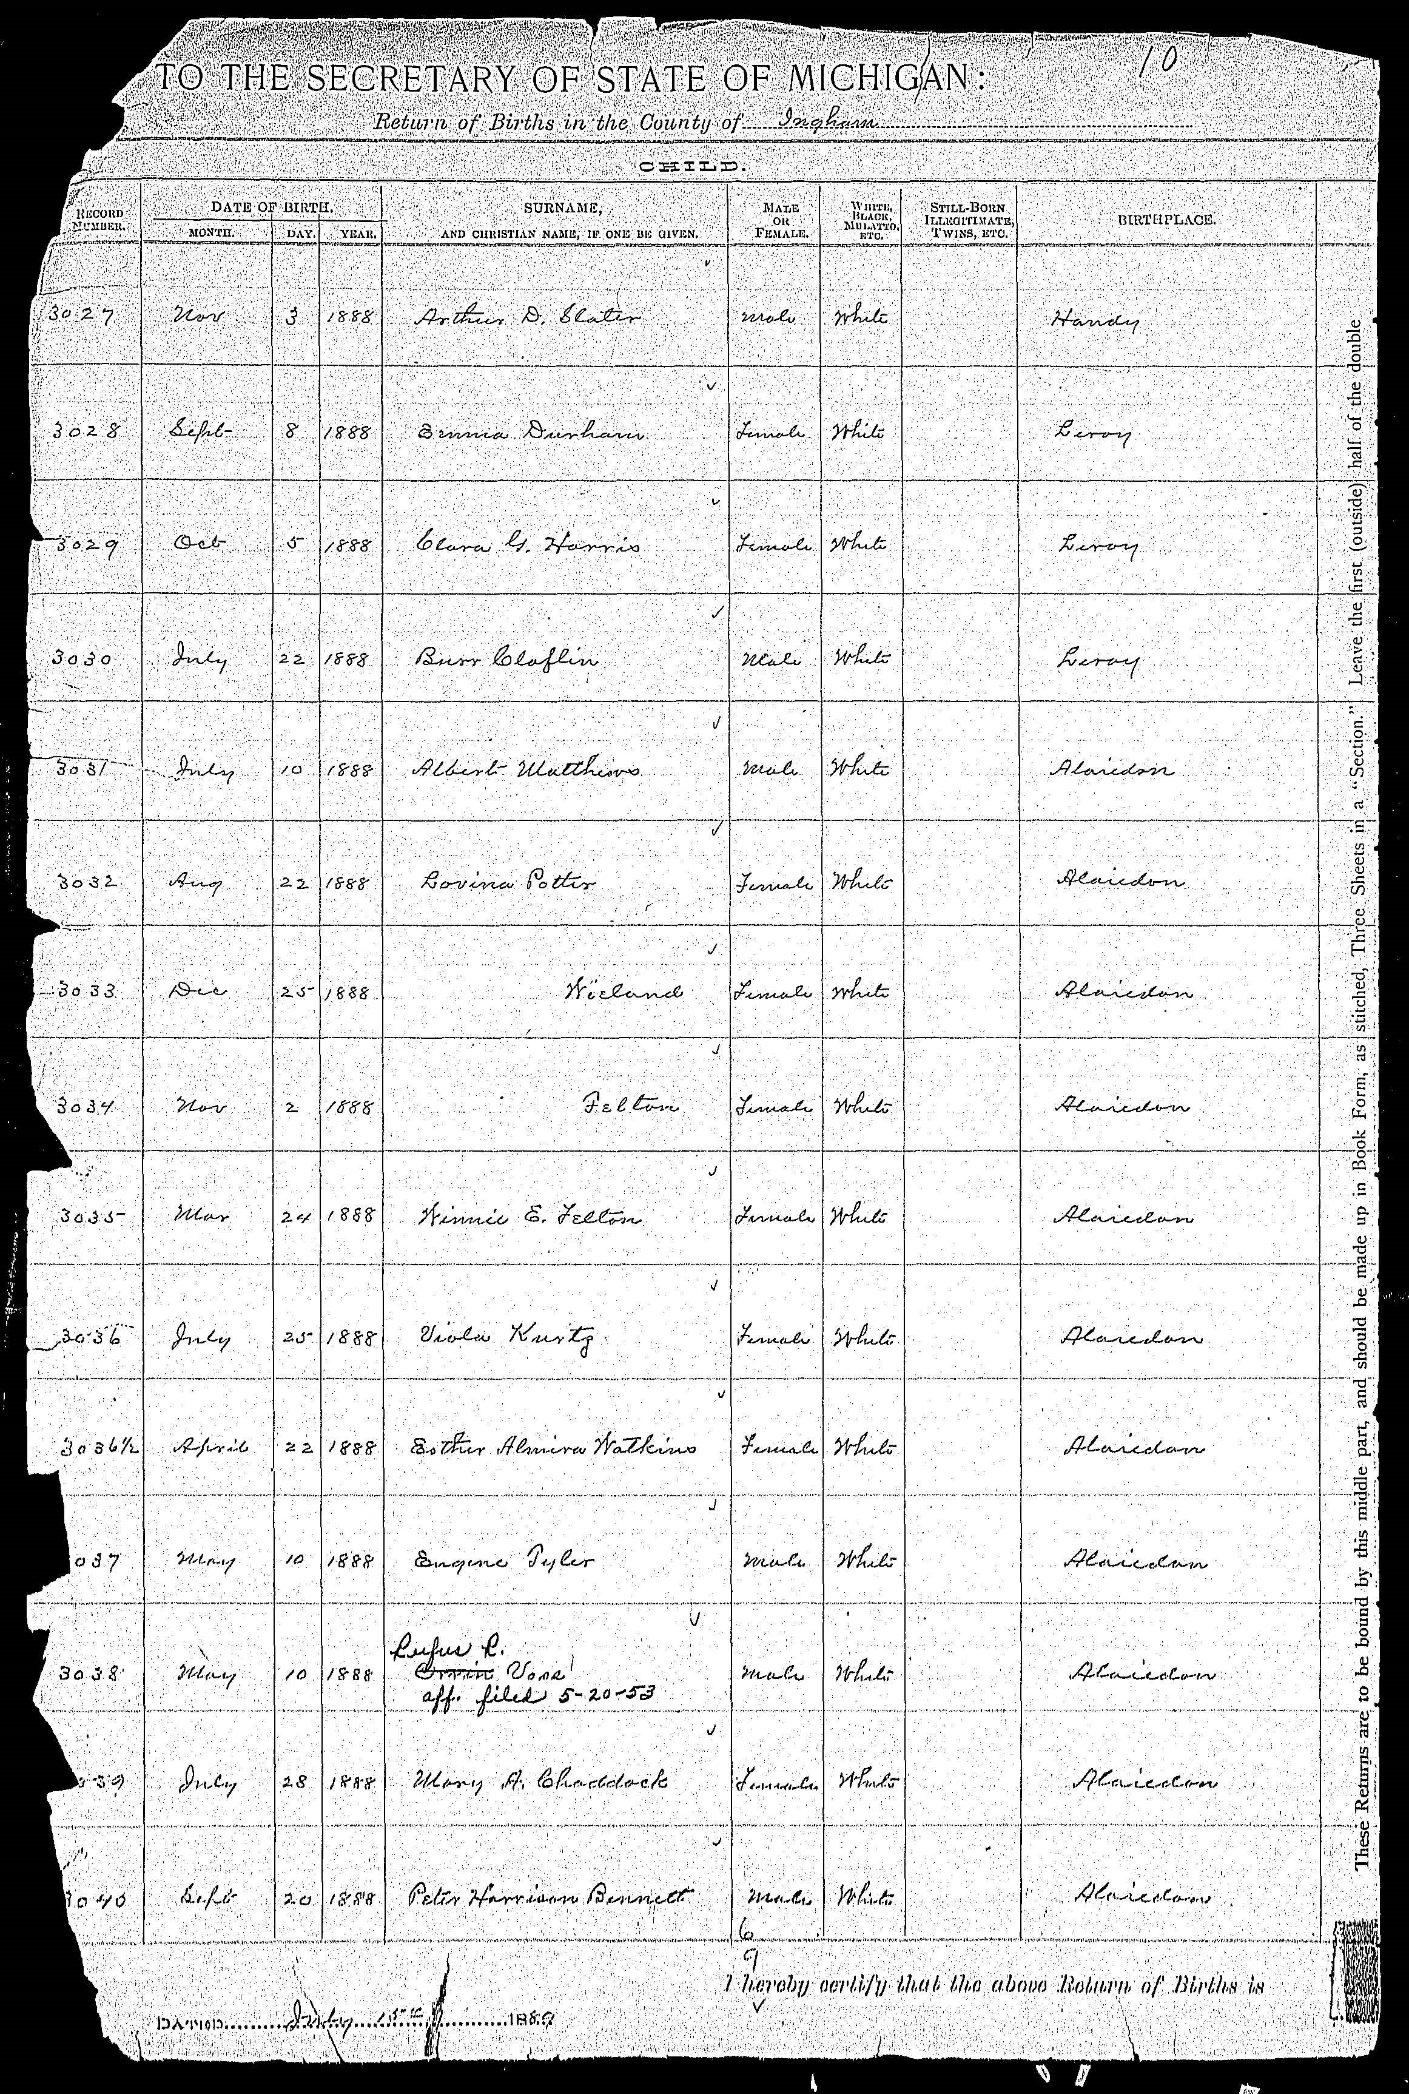 10
TO THE SECRETARY OF STATE OF MICHIGAN:
Return of Births in the County of Ingham
CHILD.
RECORD NUMBER. DATE OF BIRTH. MONTH. DAY. YEAR. SURNAME, AND CHRISTIAN NAME, IF ONE BE GIVEN. MALE OR FEMALE. WHITE, BLACK, MULATTO, ETC. STILL-BORN ILLEGITIMATE, TWINS, ETC. BIRTHPLACE.
3027 Nov 3 1888 Arthur D. Slater Male White Handy
3028 Sept 8 1888 Emma Durham Female White Leroy
3029 Oct 5 1888 Clara G. Harris Female White Leroy
3030 July 22 1888 Burr Claflin Male White Leroy
3031 July 10 1888 Albert Matthews Male White Alaiedon
3032 Aug 22 1888 Lovina Potter Female White Alaiedon
3033 Dec 25 1888 Wieland Female White Alaiedon
3034 Nov 2 1888 Felton Female White Alaiedon
3035 Mar 24 1888 Winnie E. Felton Female White Alaiedon
3036 July 25 1888 Viola Kurtz Female White Alaiedon
3036½ April 22 1888 Esther Almira Watkins Female White Alaiedon
037 May 10 1888 Eugene Tyler Male White Alaiedon
Rufus R.
3038 May 10 1888 Orrin Voss Male White Alaiedon
aff. filed 5-20-53
039 July 28 1888 Mary A. Chaddock Female White Alaiedon
3040 Sept 20 1888 Peter Harrison Bennett Male White Alaiedon
6
9
I hereby certify that the above Return of Births is
DATED July 15th 1889
These Returns are to be bound by this middle part, and should be made up in Book Form, as stitched, Three Sheets in a "Section." Leave the first (outside) half of the double